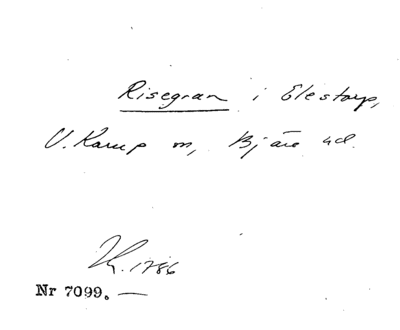 Risegran i Elestorp,
V. Karup sn, Bjäre hd.
1786
Nr 7099. —